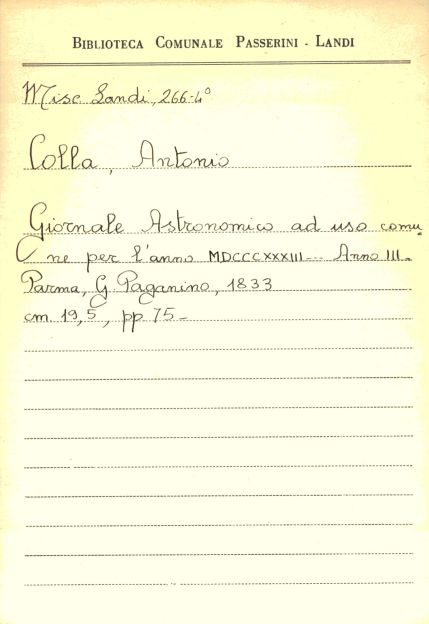 BIBLIOTECA COMUNALE PASSERINI - LANDI
Misc. Landi, 266-4°
Colla, Antonio
Giornale Astronomico ad uso comu
ne per l'anno MDCCCXXXIII... Anno III.
Parma, G. Paganino, 1833
cm. 19,5, pp 75-